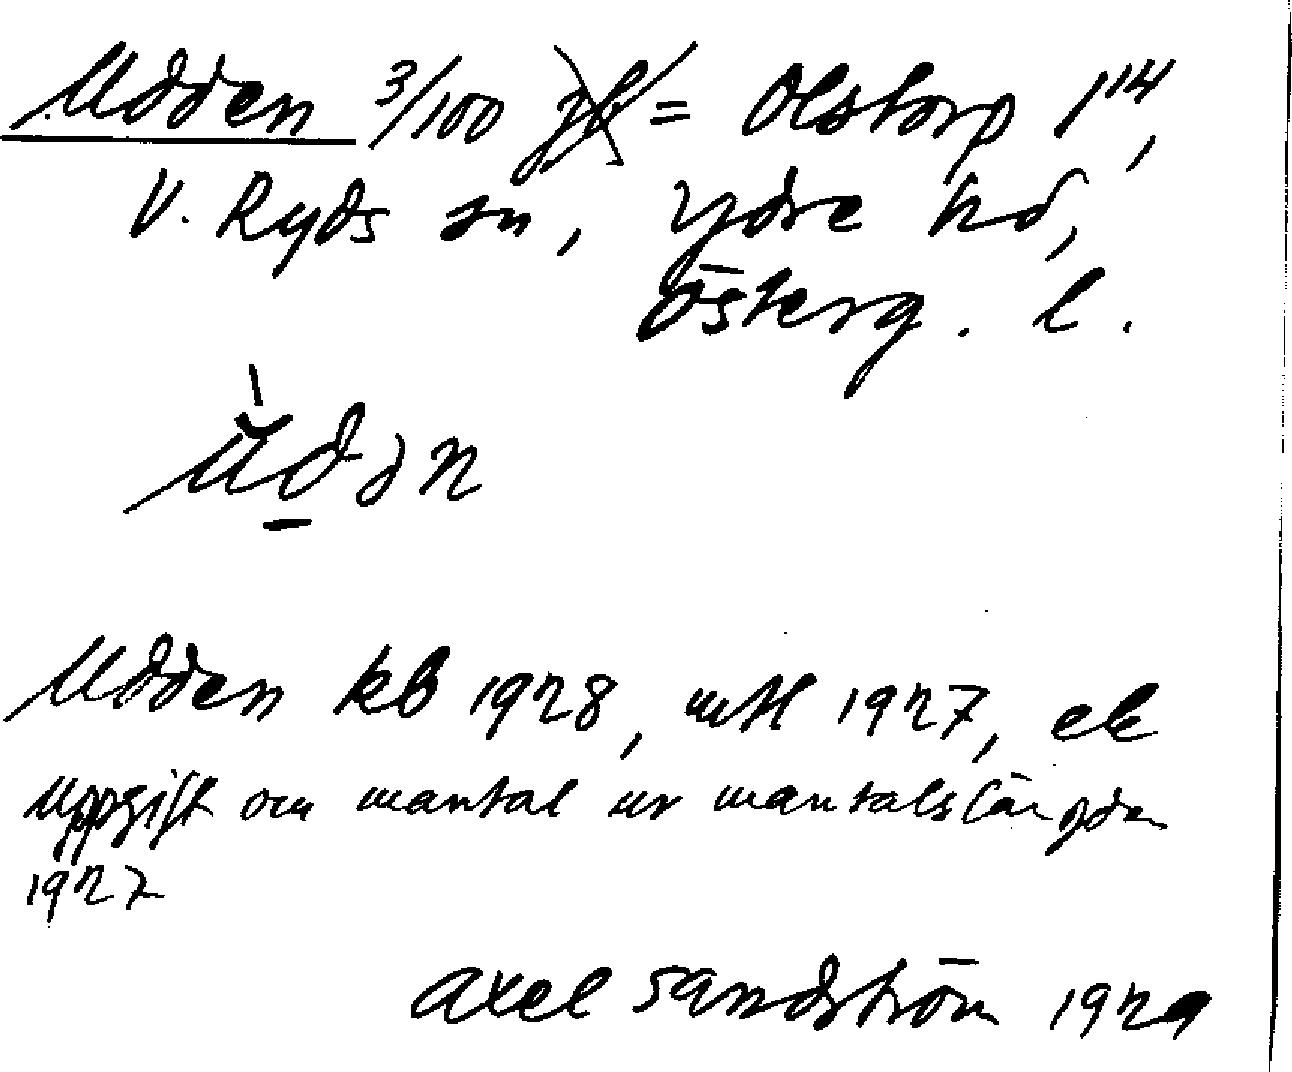 Udden 3/100 = Olstorp 1¹⁴,
V. Ryds sn, Ydre hd,
Österg. l.
Udden kb 1928, mtl 1927, ek
uppgift om mantal ur mantalslängden
1927
Axel Sandström 1929